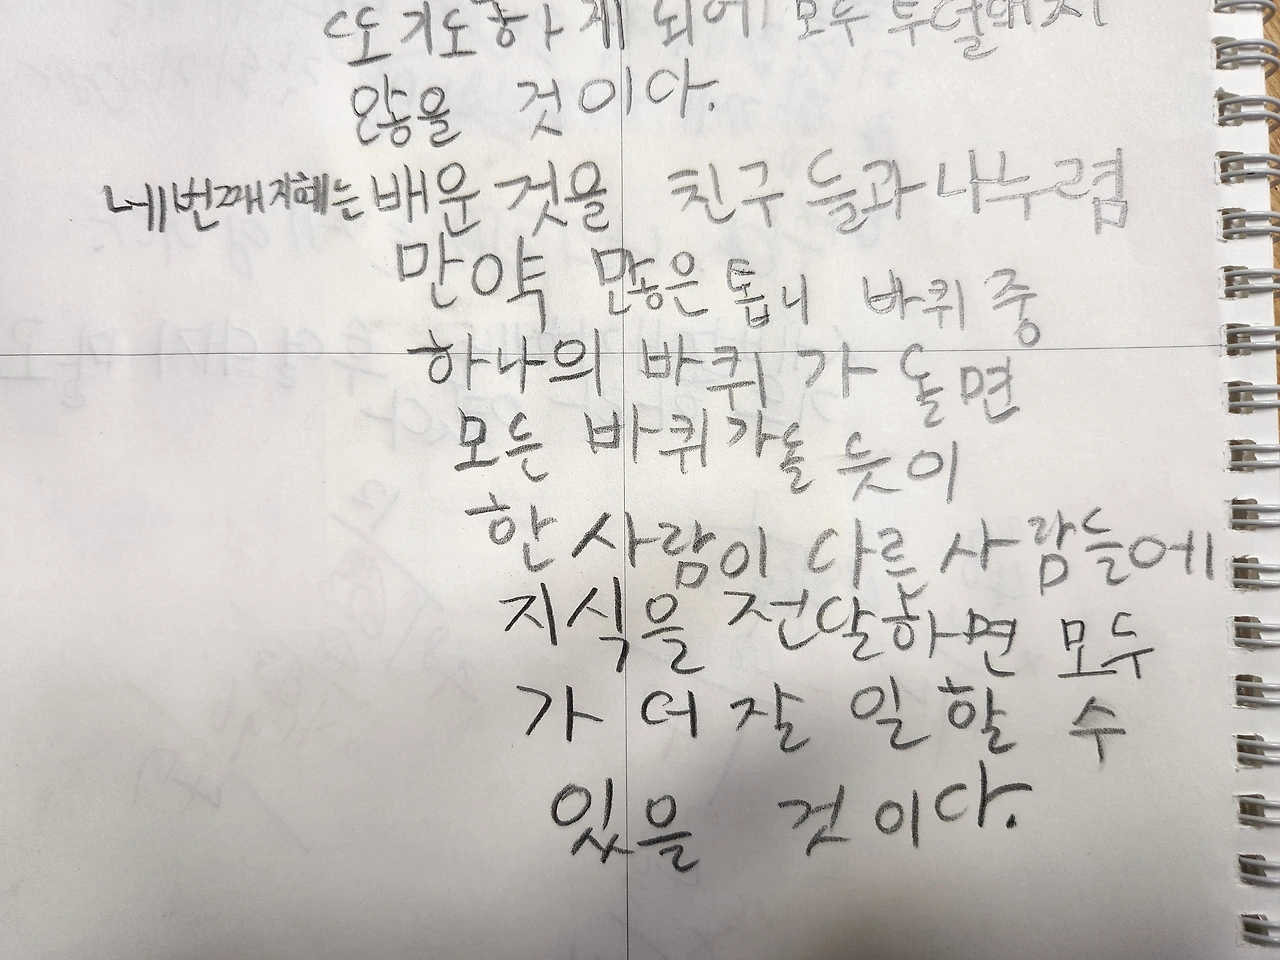 또 기도하게 되어 모두 투덜대지
않을 것이다.
네번째지혜는 배운 것을 친구들과 나누렴
만약 많은 톱니 바퀴 중
하나의 바퀴가 돌면
모든 바퀴가돌 듯이
한 사람이 다른 사람들에
지식을 전달하면 모두
가 더 잘 일할 수
있을 것이다.